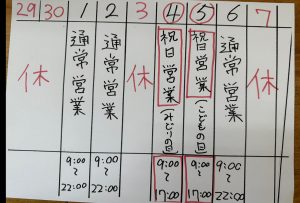 29 30 1 2 3 ④ ⑤ 6 7
休
通常営業
通常営業
休
祝日営業(みどりの日)
祝日営業(こどもの日)
通常営業
休
9:00~22:00
9:00~22:00
9:00~17:00
9:00~17:00
9:00~22:00